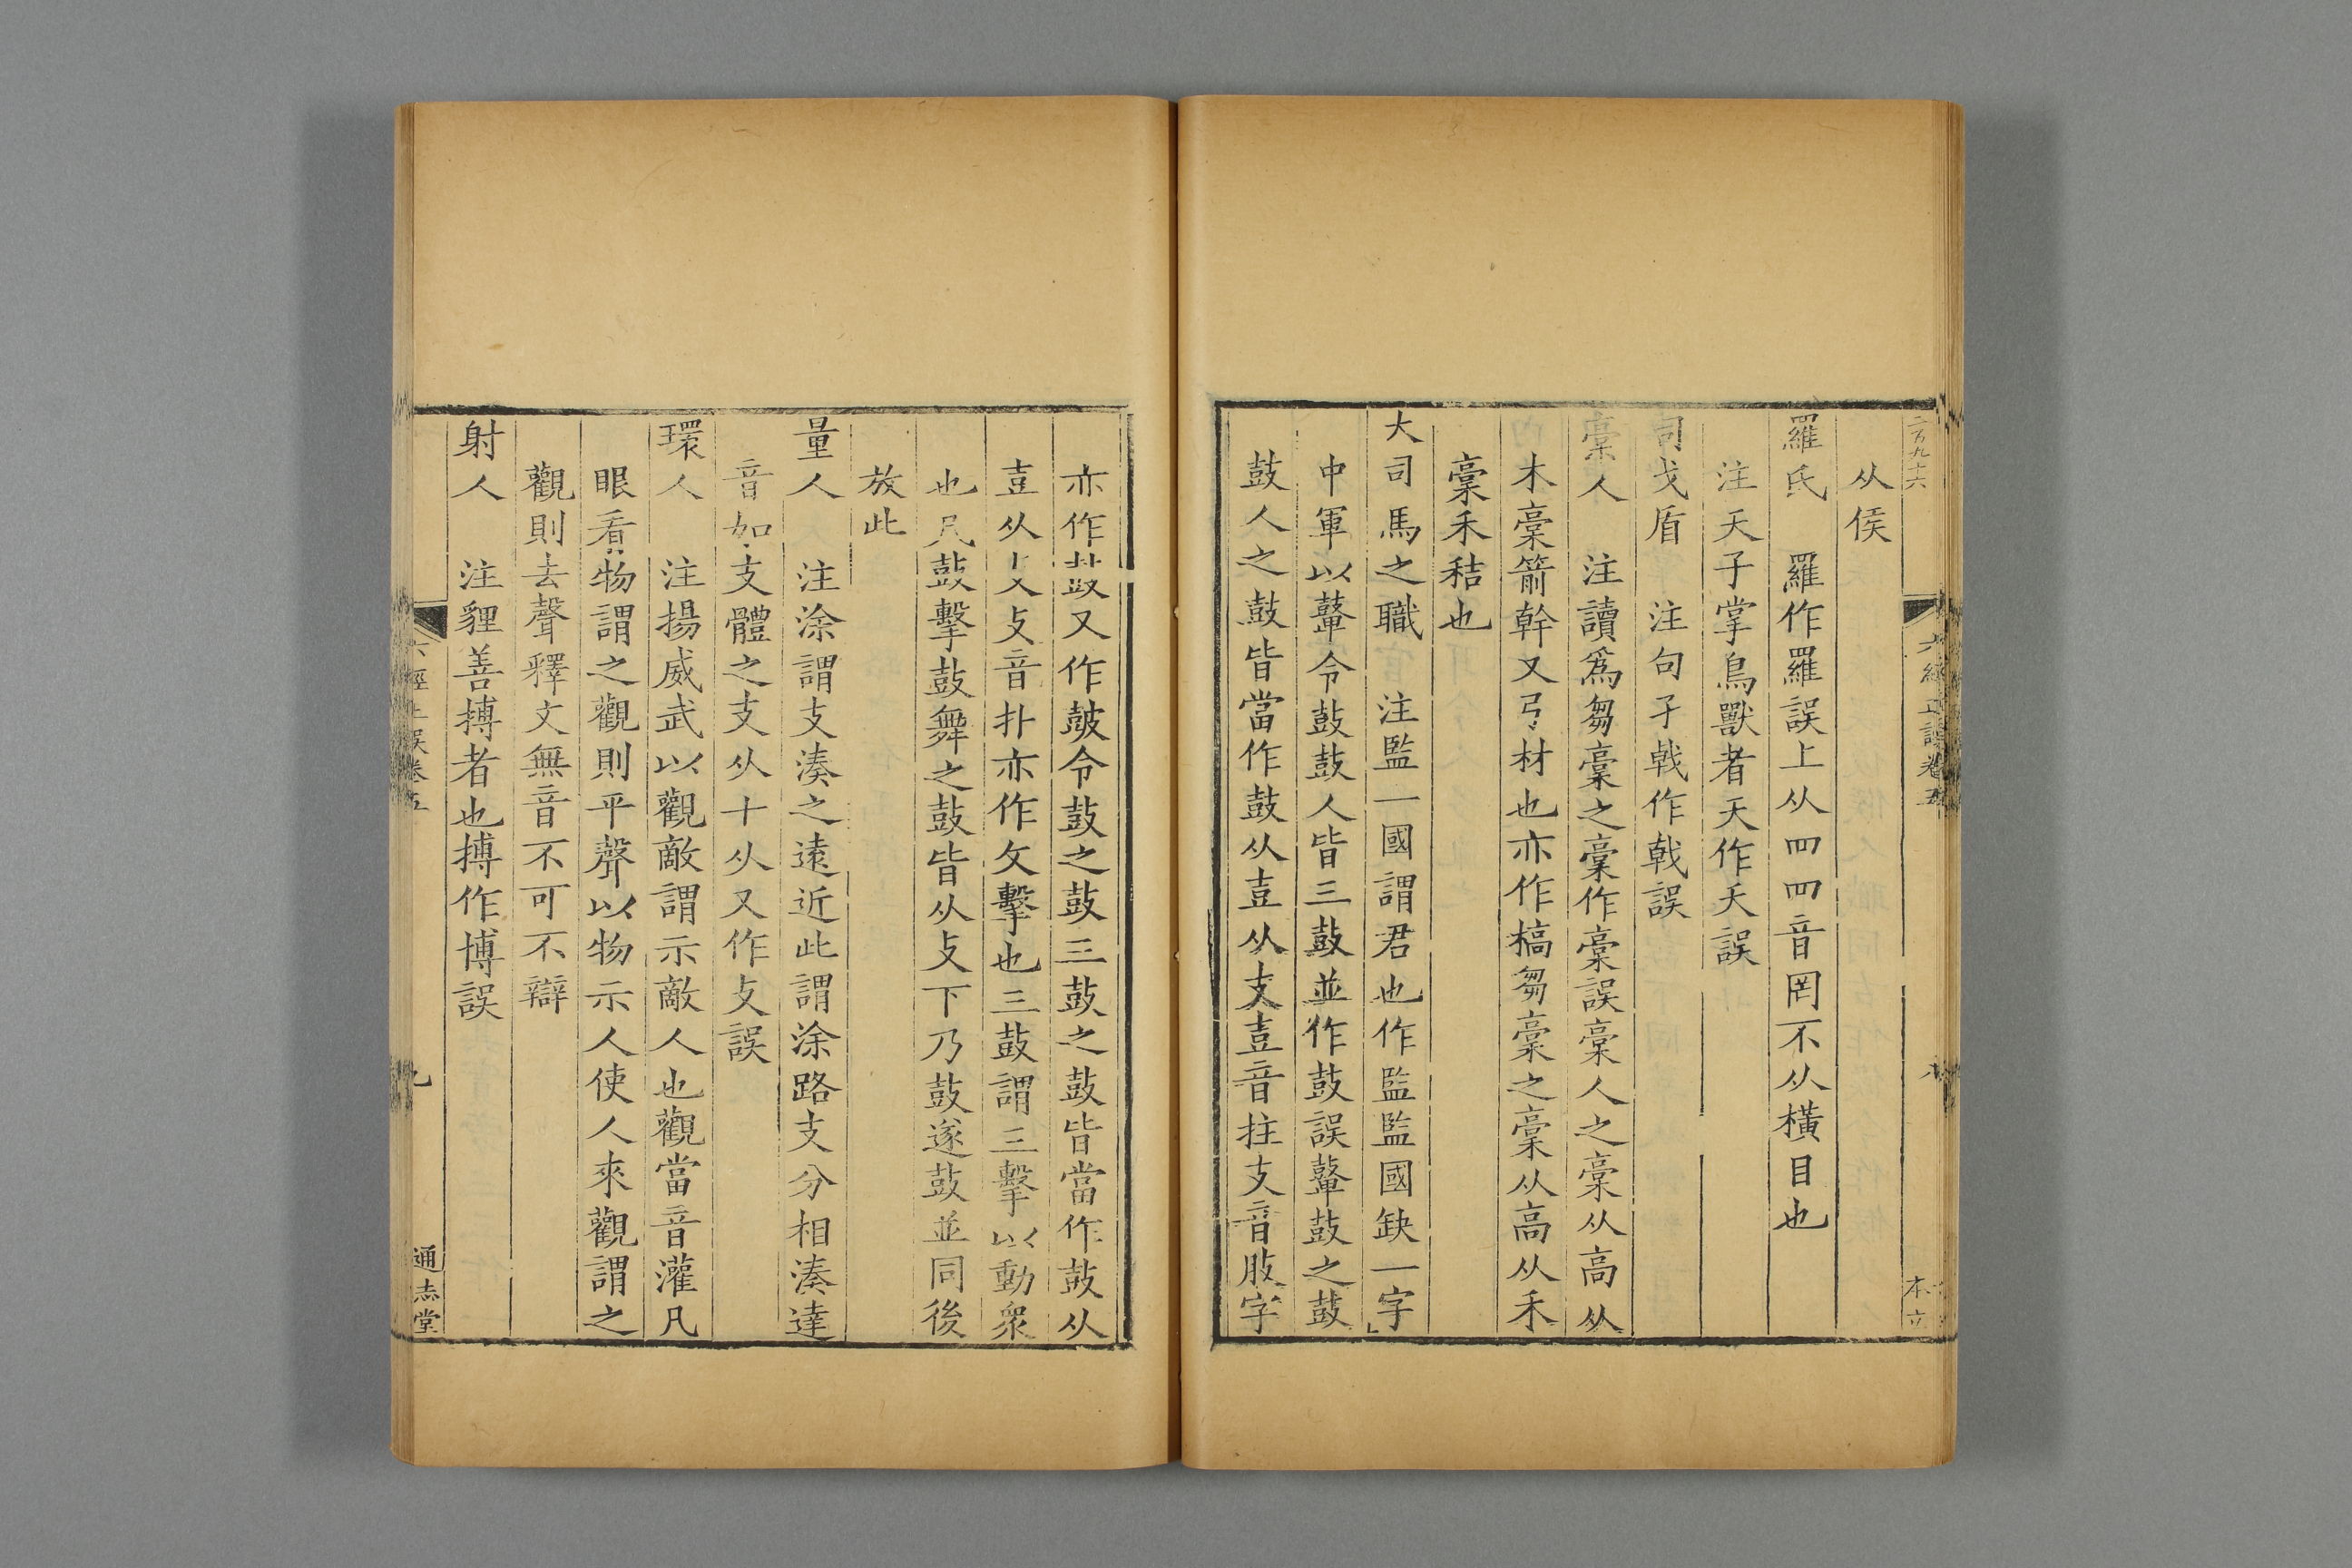 从侯
羅氏 羅作羅誤上从罒罒音罔不从橫目也
注天子掌鳥獸者天作夭誤
司戈盾 注句孑戟作戟誤
稾人 注讀爲芻稾之稾作稾誤稾人之稾从高从
木稾箭幹又弓材也亦作槁芻稾之稾从高从禾
稾禾秸也
大司馬之職 注監一國謂君也作監監國缺一字
中軍以鼙令鼓鼓人皆三鼓並作鼓誤鼙鼓之鼓
鼓人之鼓皆當作鼓从壴从支壴音拄支音股字
亦作又作皷令鼓之鼓三鼓之鼓皆當作鼓从
壴从攴音扑亦作攵擊也三鼓謂三擊以動衆
也凡鼓擊鼓舞之鼓皆从攴下乃鼓遂鼓並同後
放此
量人 注涂謂支湊之遠近此謂涂路支分相湊達
音如支體之支从十从又作攴誤
環人 注揚威武以觀敵謂示敵人也觀當音灌凡
眼看物謂之觀則平聲以物示人使人來觀謂之
觀則去聲釋文無音不可不辯
射人 注貍善搏者也搏作博誤
六經正誤卷五
九
通志堂